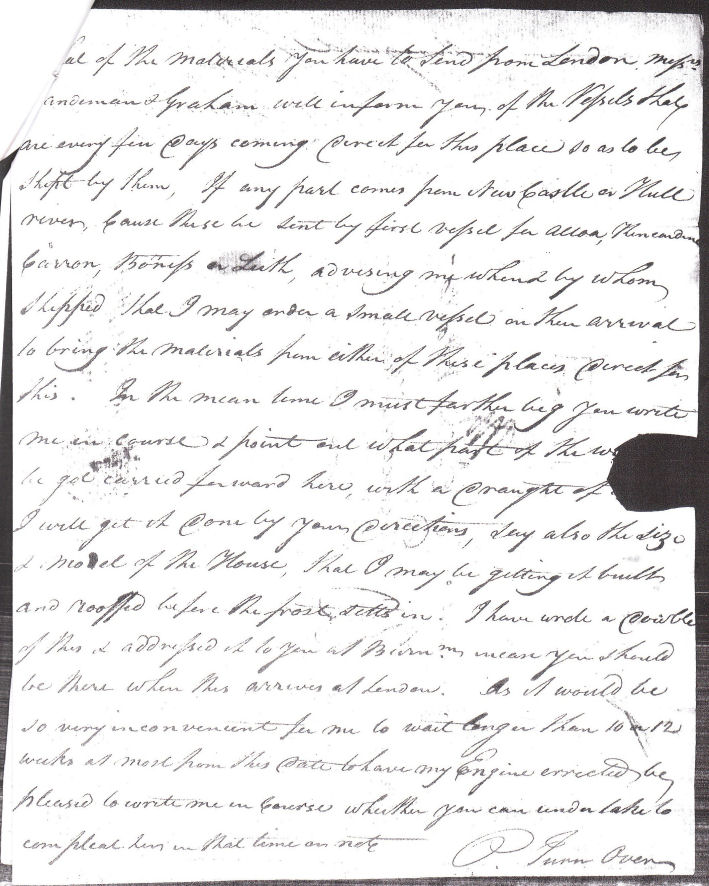 of the materials you have to send from London, Messrs
andeman & Graham will inform you, of the Vessels that
are every few Days coming Direct for this place so as to be
Shipt by them, If any part comes from New Castle or Hull
river, Cause these be sent by first vessel for Alloa, Kincardine
Carron, Boness or Leith, advising me when & by whom
Shipped that I may order a small vessel on their arrival
to bring the materials from either of these places Direct for
this. In the mean time I must farther beg you write
me in course & point out what part of the
be got carried forward here, with a Draught of
I will get it Done by your Directions, say also the size
& model of the House, that I may be getting it built
and rooffed before the frost setts in. I have wrote a Double
of this & addressed it to you at Birmm incase you should
be there when this arrives at London. As it would be
so very inconvenient for me to wait longer than 10 or 12
weeks at most from this Date to have my Engine errected, be
pleased to write me in Course whether you can undertake to
compleat hers in that time or not
P. Turn Over